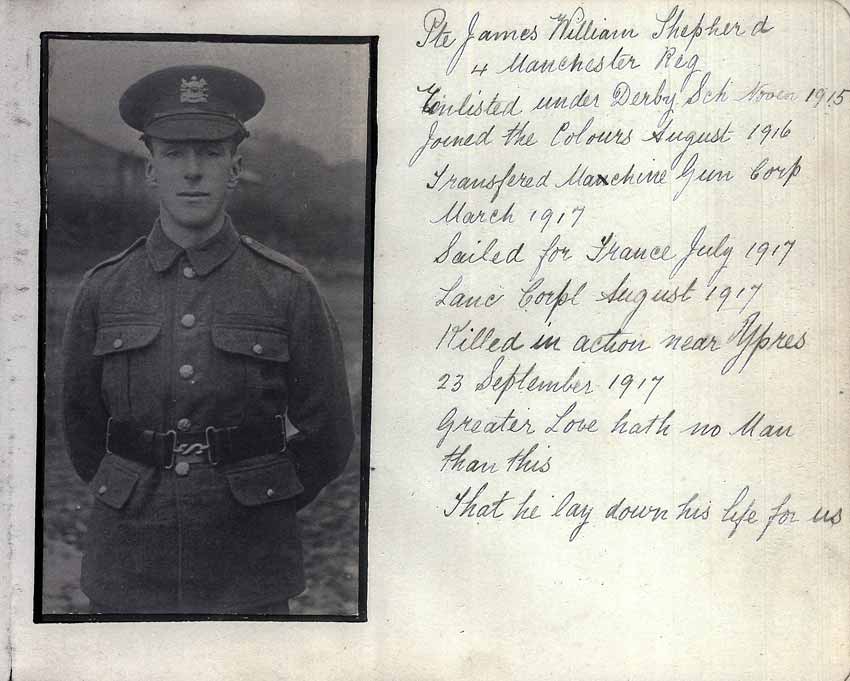 Pte James William Shepherd
4 Manchester Reg
Enlisted under Derby Sch Novem 1915
Joined the Colours August 1916
Transfered Machine Gun Corp
March 1917
Sailed for France July 1917
Lanc Corpl August 1917
Killed in action near Ypres
23 September 1917
Greater Love hath no Man
than this
That he lay down his life for us